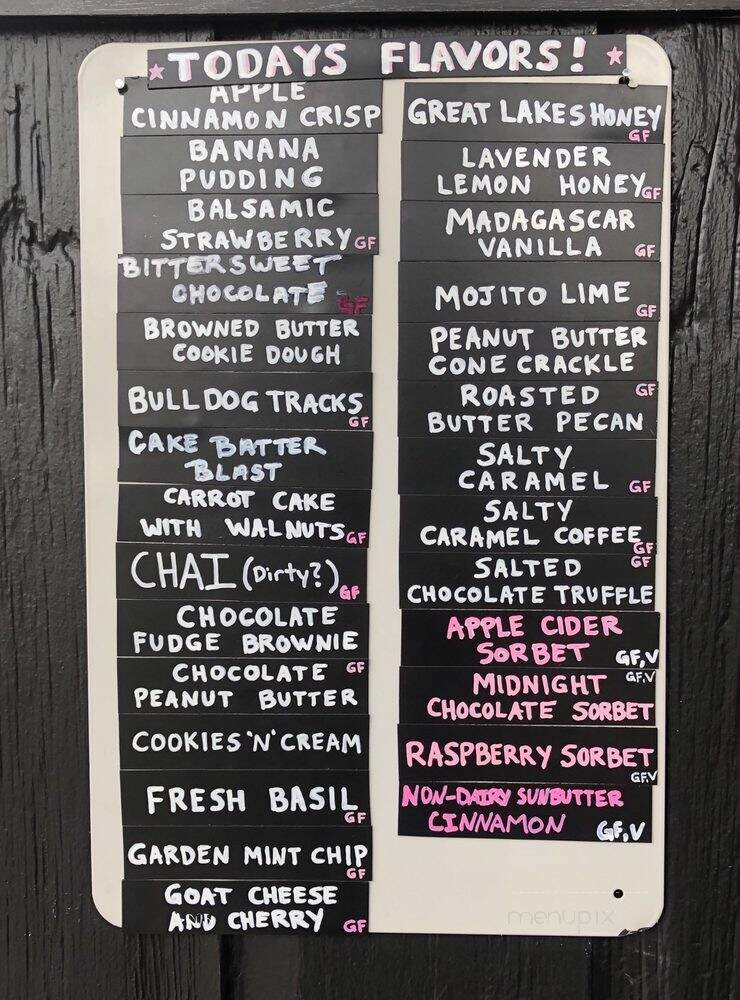 TODAYS FLAVORS!
APPLE
CINNAMON CRISP
BANANA
PUDDING
BALSAMIC
STRAWBERRY GF
BITTERSWEET
CHOCOLATE GF
BROWNED BUTTER
COOKIE DOUGH
BULLDOG TRACKS
GF
CAKE BATTER
BLAST
CARROT CAKE
WITH WALNUTS GF
CHAI (Dirty?)
GF
CHOCOLATE
FUDGE BROWNIE
CHOCOLATE GF
PEANUT BUTTER
COOKIES 'N' CREAM
FRESH BASIL
GF
GARDEN MINT CHIP
GF
GOAT CHEESE
AND CHERRY GF
GREAT LAKES HONEY
GF
LAVENDER
LEMON HONEY GF
MADAGASCAR
VANILLA GF
MOJITO LIME
GF
PEANUT BUTTER
CONE CRACKLE
ROASTED GF
BUTTER PECAN
SALTY
CARAMEL GF
SALTY
CARAMEL COFFEE
GF
SALTED GF
CHOCOLATE TRUFFLE
APPLE CIDER
SORBET GF,V
MIDNIGHT GF,V
CHOCOLATE SORBET
RASPBERRY SORBET
GF,V
NON-DAIRY SUNBUTTER
CINNAMON GF,V
menupix